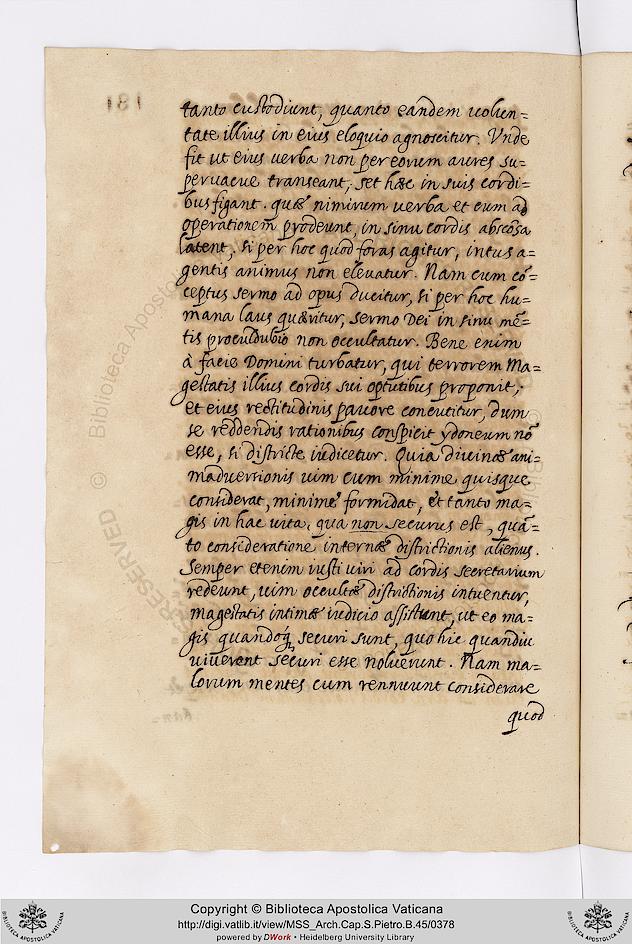 tanto custodiunt, quanto eandem uolun=
tate illius in eius eloquio agnoscitur. Vnde
fit ut eius uerba non per eorum aures su=
peruacue transeant, set hæc in suis cordi=
bus figant. quæ nimirum uerba et cum ad
operationem prodeunt, in sinu cordis abscõsa
latent, si per hoc quod foras agitur, intus a=
gentis animus non eleuatur. Nam cum cõ=
ceptus sermo ad opus ducitur, si per hoc hu=
mana laus quæritur, sermo Dei in sinu mẽ=
tis proculdubio non occultatur. Bene enim
à facie Domini turbatur, qui terrorem Ma=
gestatis illius cordis sui optutibus proponit;
et eius rectitudinis pauore concutitur, dum
se reddendis rationibus conspicit ydoneum nõ
esse, si districte iudicetur. Quia diuinæ ani=
maduersionis uim cum minime quisque
considerat, minimè formidat, et tanto ma=
gis in hac uita, qua non securus est, quã=
to consideratione internæ districtionis alienus.
Semper etenim iusti uiri ad cordis secretarium
redeunt, uim occultæ districtionis intuentur,
magestatis intimæ iudicio assistunt, ut eo ma=
gis quandoq; securi sunt, quo hic quandiu
uiuerent securi esse noluerunt. Nam ma=
lorum mentes cum rennuunt considerare
quod
181
© Biblioteca Apostolica
RESERVED
Copyright © Biblioteca Apostolica Vaticana
http://digi.vatlib.it/view/MSS_Arch.Cap.S.Pietro.B.45/0378
powered by DWork • Heidelberg University Library